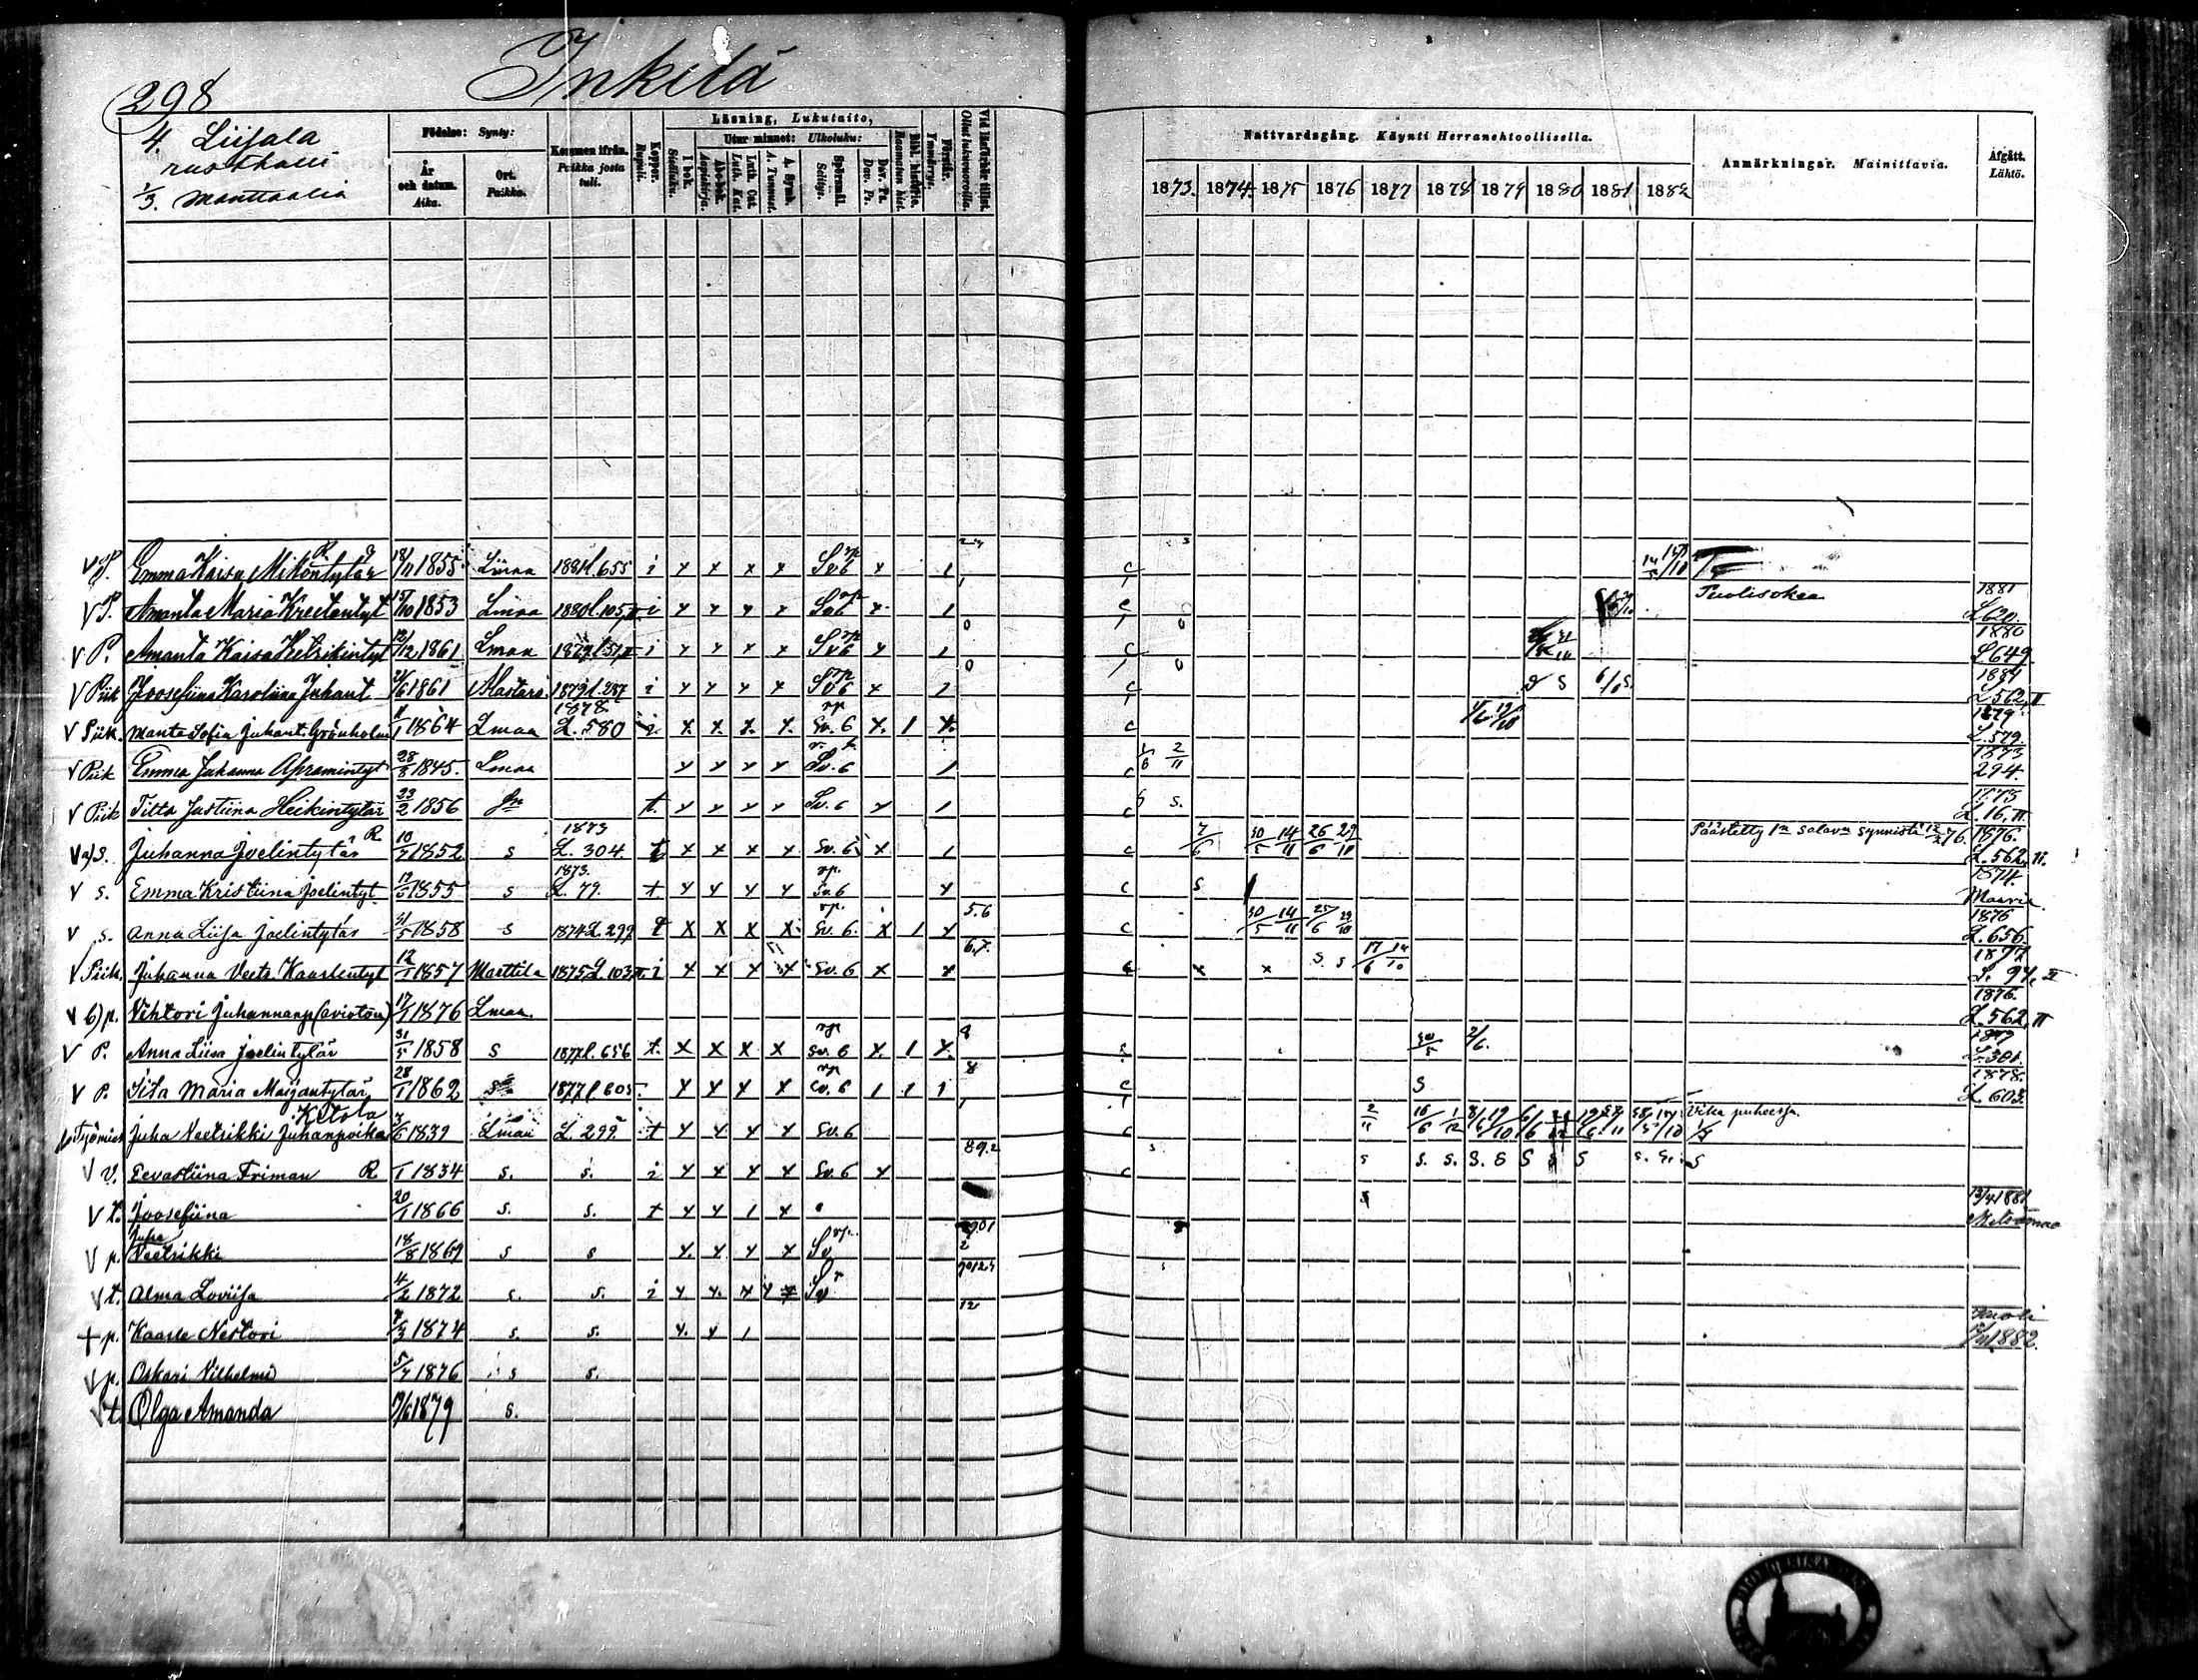 298
Inkilä
4. Liisala
rusthalli
1/3. manttaalia
Födelse: Synty:
År och datum. Aika.
Ort. Paikka.
Kommen ifrån. Paikka josta tuli.
Koppor. Rupuli.
Läsning, Lukutaito,
Utur minnet: Ulkoluku:
I bok. Sisäluku.
Abc-bok. Aapiskirja.
Luth. Cat. Luth. Kat.
A. Symb. A. Tunnust.
Spörsmål. Selitys.
Dav. Ps. Dav. Ps.
Bibl. historie. Raamatun hist.
Förstår. Ymmärrys.
Vid läsförhör tillst. Ollut lukuvuorolla.
Nattvardsgång. Käynti Herranehtoollisella.
1873. 1874. 1875 1876 1877 1878 1879 1880 1881 1882
Anmärkningar. Mainittavia.
Afgått. Lähtö.
v P. Emma Kaisa Mikontytär R 18/11 1855 Lmaa 1881 l. 655 i x x x x Sv 6 x 1
v P. Amanta Maria Kreetantyt 15/10 1853 Lmaa 1880 l. 105, II i x x x x Sv 6 x 1 Puolisokea 1881 L 620.
v P. Amanta Kaisa Heikintyt 12/12 1861 Lmaa 1879 l. 51, II i x x x x Sv 6 x 1 1880 L 649
v Piik Joosefiina Karoliina Juhant 21/6 1861 Alastaro 1879 l. 287 i x x x x Sv 6 x 1 1881 L 562, II
v Piik. Manta Sofia Juhant. Grönholm 1864 Lmaa 1878. L. 580 i. x x. x. x. Sv. 6 x. 1 x. 1879 L. 579.
v Piik Emma Juhanna Apramintyt 28/8 1845. Lmaa x x x x Sv. 6 1 1/6 2/11 1873 294.
v Piik Titta Justiina Heikintytär 23/2 1856 t. x x x x Sv. 6 x 1 s. L. 16, II.
v a) s. Juhanna Joelintytär R 10/7 1852 s 1873 L. 304. t x x x x Sv. 6 x 1 7/6 30/5 14/11 26/6 29/10 Päästetty 1:n salavn synnistä 12/2 76. 1876. L. 562, II.
v s. Emma Kristiina Joelintyt. 1855 s 1873. L. 79. t. x x x x Sv. 6 x s 1874 Maaria.
v s. Anna Liisa Joelintytär 31/5 1858 s 1874 L. 299 t x x x x Sv. 6. x 1 x 5.6 30/5 14/11 25/6 29/10 1876 L. 656
v Piik. Juhanna Veetr. Kaarlentyt 12/1 1857 Marttila 1875 L. 103, II i x x x x Sv. 6 x x 6.7. x x s. s 17/6 14/10 1877 L. 94, II
v b) p. Vihtori Juhannanp. (avioton) 17/1 1876 Lmaa. 1876. L. 562, II
v P. Anna Liisa Joelintytär 31/5 1858 s 1877 l. 656 t. x x x x Sv. 6 x. 1 x. 8 30/5 2/6. L. 301.
v P. Iita Maria Maijantytär 28/1 1862 1877 l. 605 x x x x Sv. 6 1 1 1 8 s 1878. L. 603.
Ketola
Työmies Juha Veetrikki Juhanpoika 1839 Lmaa L. 299. t x x x x Sv. 6 2/11 16/6 1/12 Vika puheessa.
v v. Eevastiina Friman R 1834 s. s. i x x x x Sv. 6 x 89.2 s s. s. s. s s s s s. s
v t. Joosefiina 20/1 1866 s. s. t x x 1 x 13/4 1881 Metsämaa
v p. Juha Veetrikki 18/8 1869 s s x. x x x Sv
v t. Alma Loviisa 4/2 1872 s. s. i x. x. x x Sv
+ p. Kaarle Nestori 7/3 1874 s. s. x. x 1 12 Kuoli 1882
v p. Oskari Vilhelmi 5/7 1876 s s.
v t. Olga Amanda 1879 s.